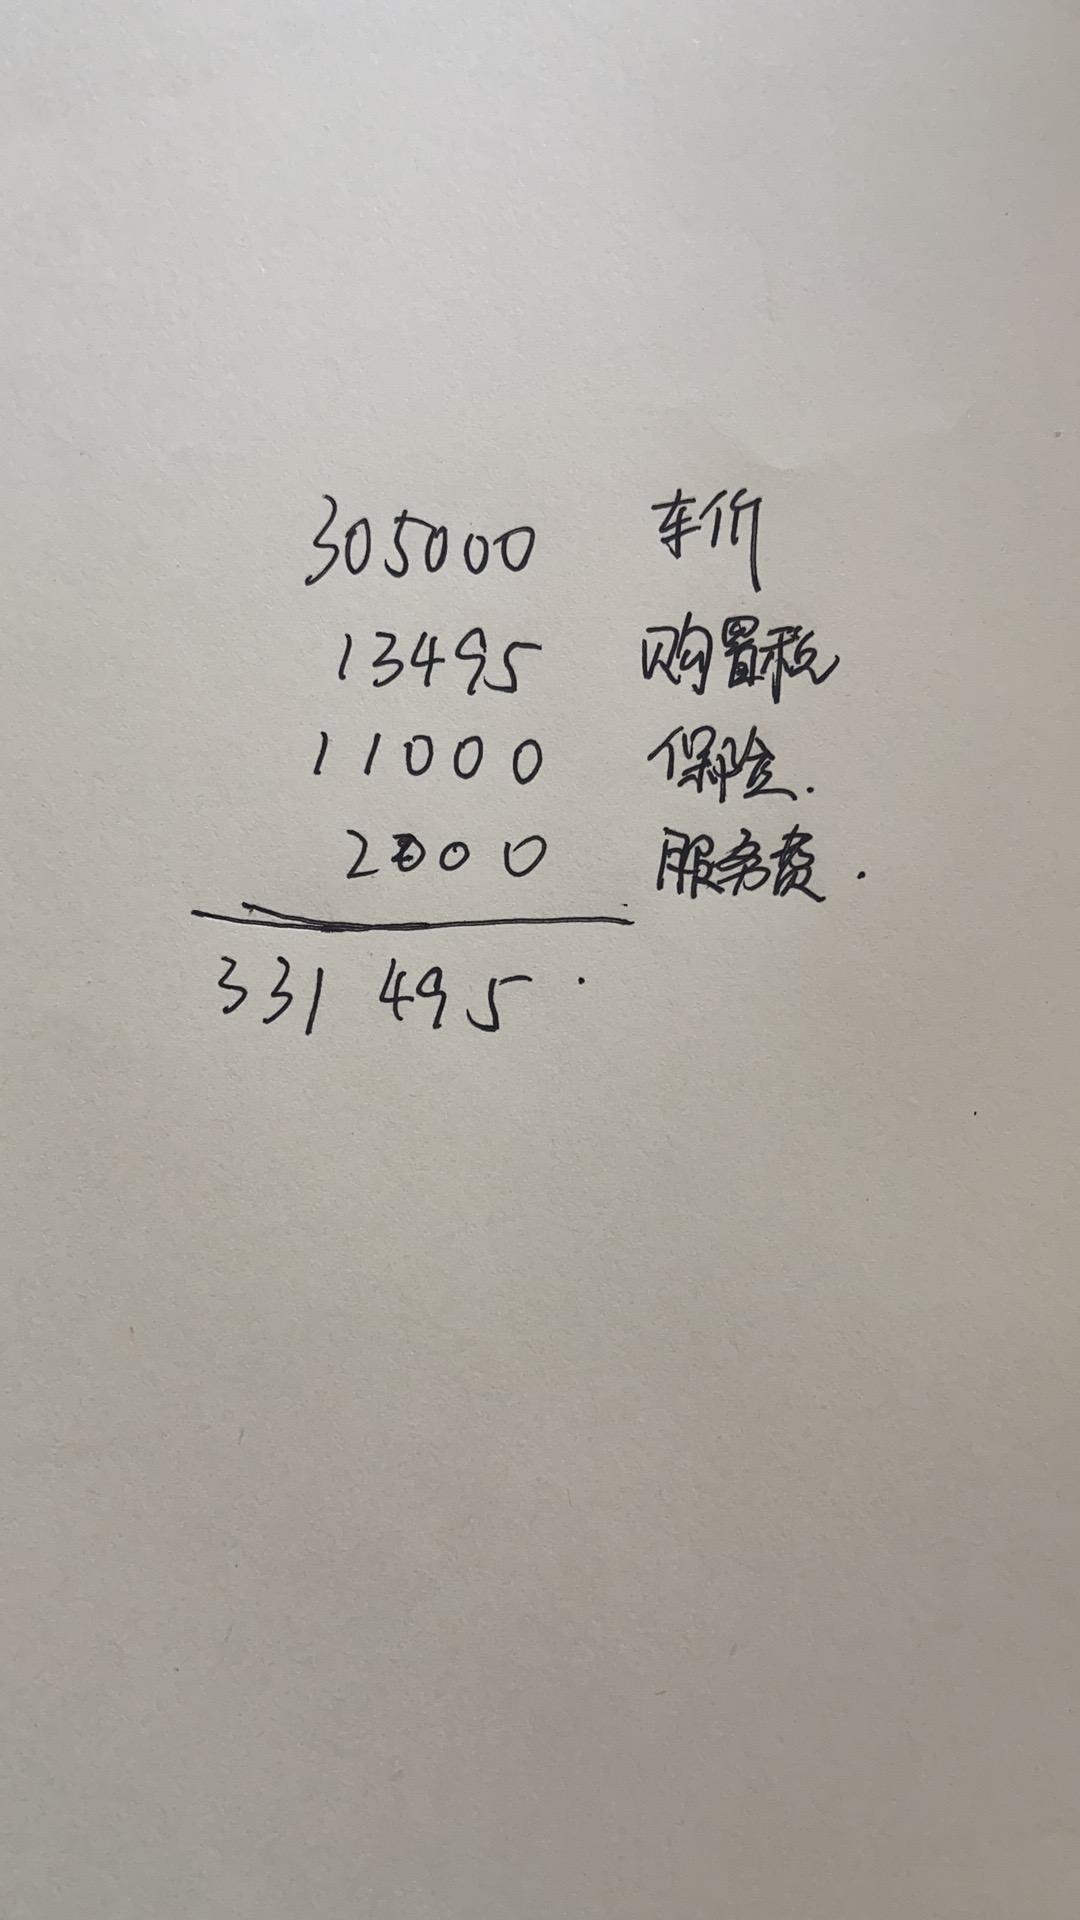 305000 车价
13495 购置税
11000 保险.
2000 服务费.
331495.